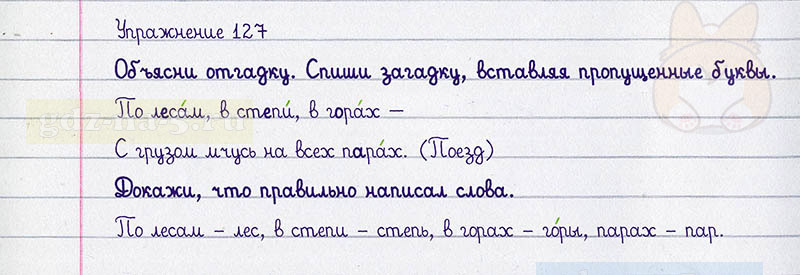 Упражнение 127
Объясни отгадку. Спиши загадку, вставляя пропущенные буквы.
По леса́м, в степи́, в гора́х –
С грузом мчусь на всех пара́х. (Поезд)
Докажи, что правильно написал слова.
По лесам – лес, в степи – степь, в горах – го́ры, парах – пар.
gdz-na-5.ru